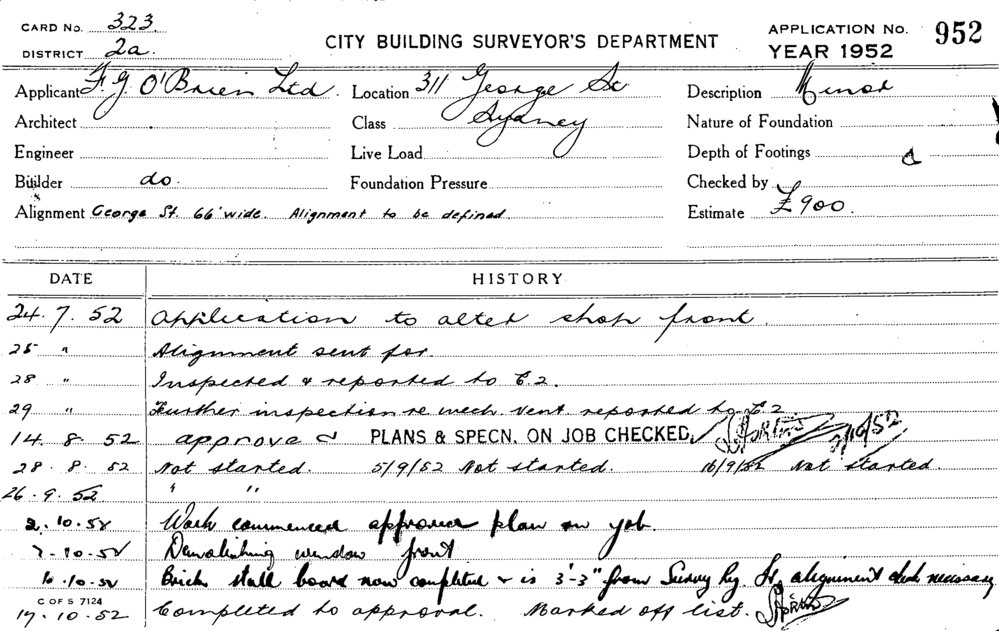 CARD No. 323
DISTRICT 2a.
CITY BUILDING SURVEYOR'S DEPARTMENT
APPLICATION No. 952
YEAR 1952
Applicant F.G. O'Brien Ltd. Location 311 George St Description Minor
Architect Class Sydney Nature of Foundation
Engineer Live Load Depth of Footings
Builder do. Foundation Pressure Checked by
Alignment George St. 66' wide. Alignment to be defined. Estimate £900.
DATE HISTORY
24.7.52 Application to alter shop front.
25 " Alignment sent for.
28 " Inspected & reported to C.2.
29 " Further inspection re mech. vent. reported to C.2
14.8.52 approved PLANS & SPECN. ON JOB CHECKED, 2/10/52
28.8.52 Not started. 5/9/52 Not started. 16/9/52 Not started.
26.9.52 " "
2.10.52 Work commenced approved plan on job.
7.10.52 Demolishing window front
10.10.52 Brick stall board now completed & is 3'-3" from Survey alignment check necessary
C OF S 7124
17.10.52 Completed to approval. Marked off list.